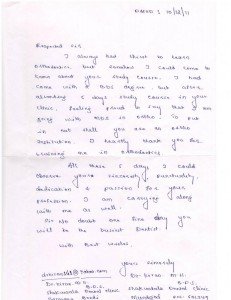 10/12/11
Respected sir
I always had thirst to learn
orthodontics, but somehow I could come to
know about your study course. I had
came with a BDS degree but after
attending 6 days study course in your
clinic, feeling proud to say that I am
going with MDS in ortho to put
in nut shell you are an ortho
institution. I heartly thank you for
training me in orthodontics.
All these 6 days I could
observe your sincerity, punctuality,
dedication & passion for your
profession. I am carrying along
with me as well.
Sir No doubt one fine day you
will be the busiest Dentist
With Best wishes.
Yours sincerely
Dr. Kiran M.S.
B.D.S.
Dental clinic